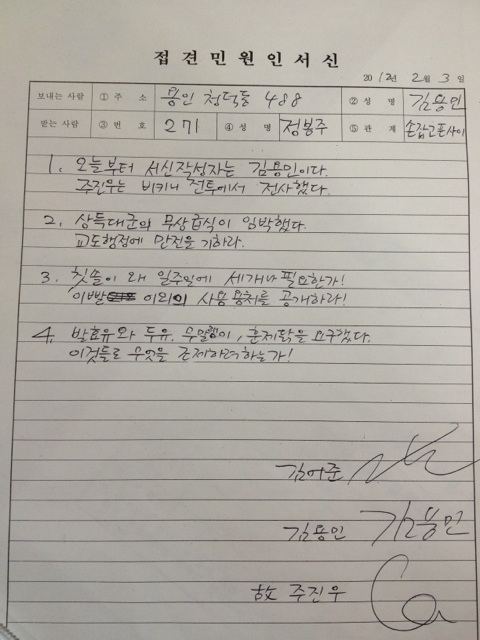 접견민원인서신
2012년 2월 3일
보내는 사람 ① 주 소 용인 청덕동 488 ② 성 명 김용민
받는 사람 ③ 번 호 271 ④ 성 명 정봉주 ⑤ 관 계 손잡고폰사이
1. 오늘부터 서신작성자는 김용민이다.
주진우는 비키니 전투에서 전사했다.
2. 상득대군의 무상급식이 임박했다.
교도행정에 만전을 기하라.
3. 칫솔이 왜 일주일에 세개나 필요한가!
이빨 이외의 사용용처를 공개하라!
4. 발효유와 두유, 무말랭이, 훈제닭을 요구했다.
이것들로 무엇을 훈제하려하는가!
김어준
김용민 김용민
故 주진우